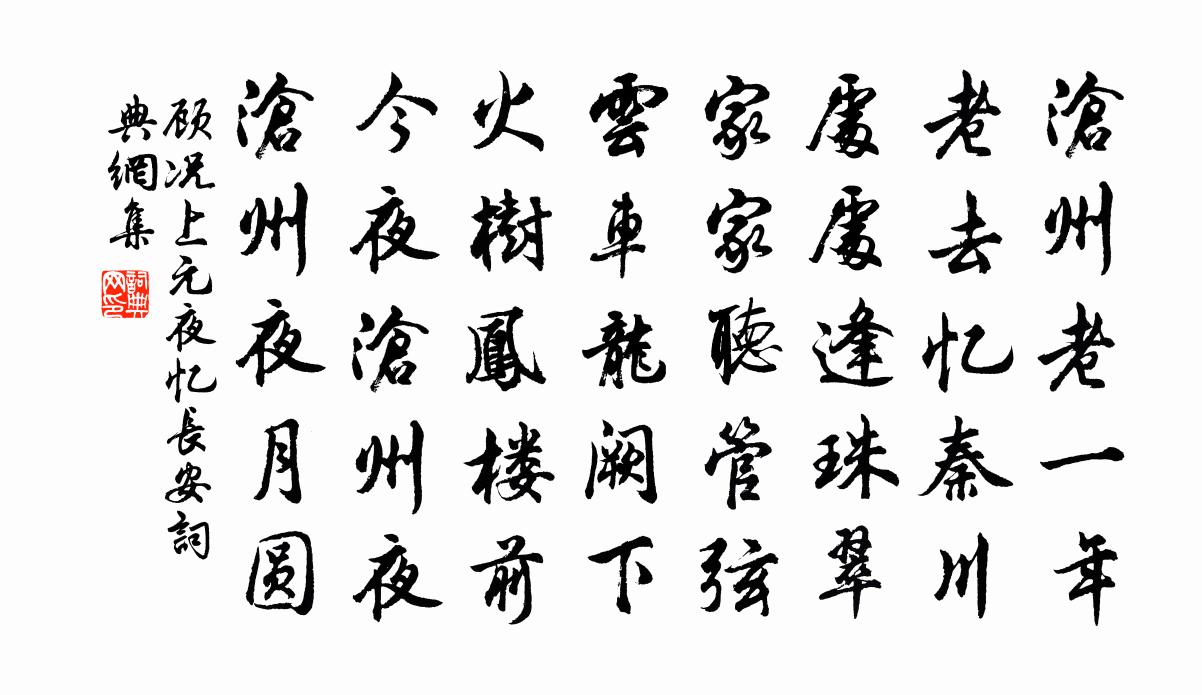 滄州老一年
老去忆秦川
處處逢珠翠
家家聽管弦
雲車龍闕下
火樹鳳楼前
今夜滄州夜
滄州夜月圆
顾况上元夜忆長安詞
典網集
詞典網印